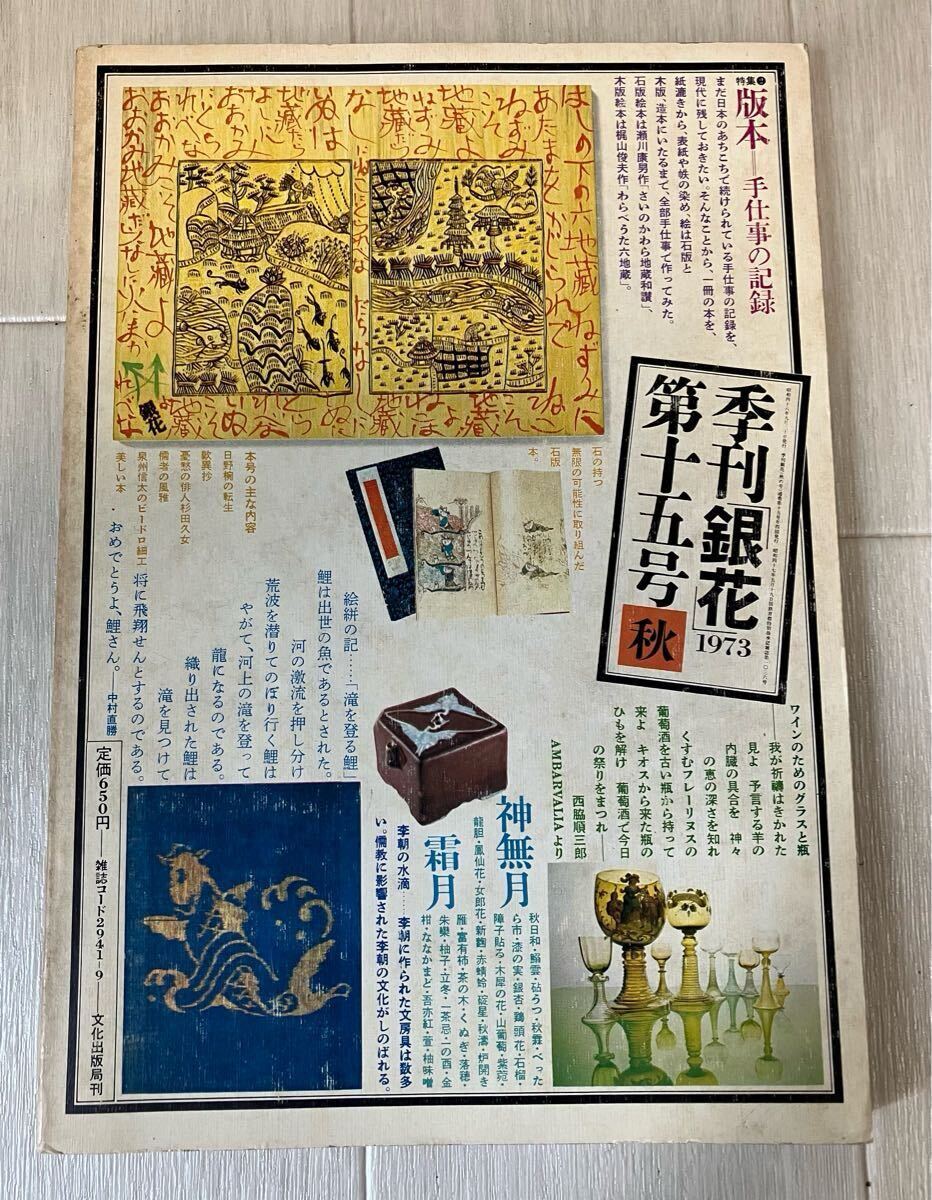 特集❷
版本＝手仕事の記録
まだ日本のあちこちで続けられている手仕事の記録を、
現代に残しておきたい。そんなことから、一冊の本を、
紙漉きから、表紙や帙の染め、絵は石版と
木版、造本にいたるまで、全部手仕事で作ってみた。
石版絵本は瀬川康男作「さいのかわら地蔵和讃」、
木版絵本は梶山俊夫作「わらべうた六地蔵」。
はしの下の六地蔵 ねずみに
あたまをかじられて
季刊「銀花」
1973
第十五号
秋
石の持つ
無限の可能性に取り組んだ
石版
本。
本号の主な内容
日野椀の転生
歎異抄
憂愁の俳人杉田久女
儒者の風雅
泉州信太のビードロ細工
美しい本
絵絣の記……「滝を登る鯉」
鯉は出世の魚であるとされた。
河の激流を押し分け
荒波を潜りてのぼり行く鯉は
やがて、河上の滝を登って
龍になるのである。
織り出された鯉は
滝を見つけて
将に飛翔せんとするのである。
・おめでとうよ、鯉さん。──中村直勝
ワインのためのグラスと瓶
──我が祈禱はきかれた
見よ 予言する羊の
内臓の具合を 神々
の恵の深さを知れ
くすむフレーリヌスの
葡萄酒を古い瓶から持って
来よ キオスから来た瓶の
ひもを解け 葡萄酒で今日
の祭りをまつれ──
西脇順三郎
AMBARVALIAより
神無月
秋日和・鰯雲・砧うつ・秋霖・べった
ら市・漆の実・銀杏・鶏頭花・石榴・
障子貼る・木犀の花・山葡萄・紫苑・
龍胆・鳳仙花・女郎花・新麴・赤蜻蛉・碇星・秋濤・炉開き
霜月
雁・富有柿・茶の木・くぬぎ・落穂・
朱欒・柚子・立冬・一茶忌・一の酉・金
柑・ななかまど・吾亦紅・萱・柚味噌
李朝の水滴……李朝に作られた文房具は数多
い。儒教に影響された李朝の文化がしのばれる。
定価650円
雑誌コード2941-9
文化出版局刊